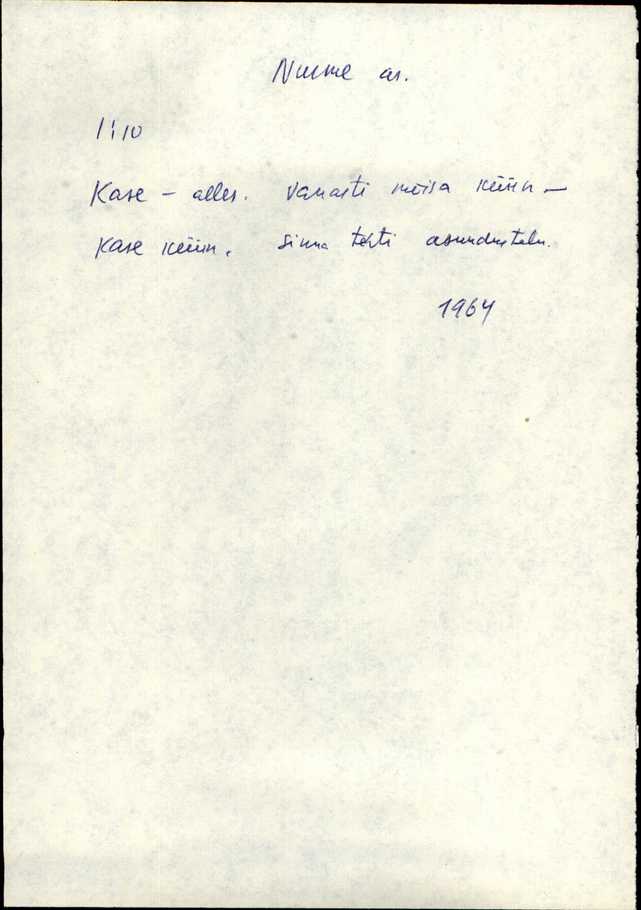 Nurme as.
1:10
Kase – alles. Vanasti mõisa küün –
Kase küün. Sinna tehti asundustalu.
1964